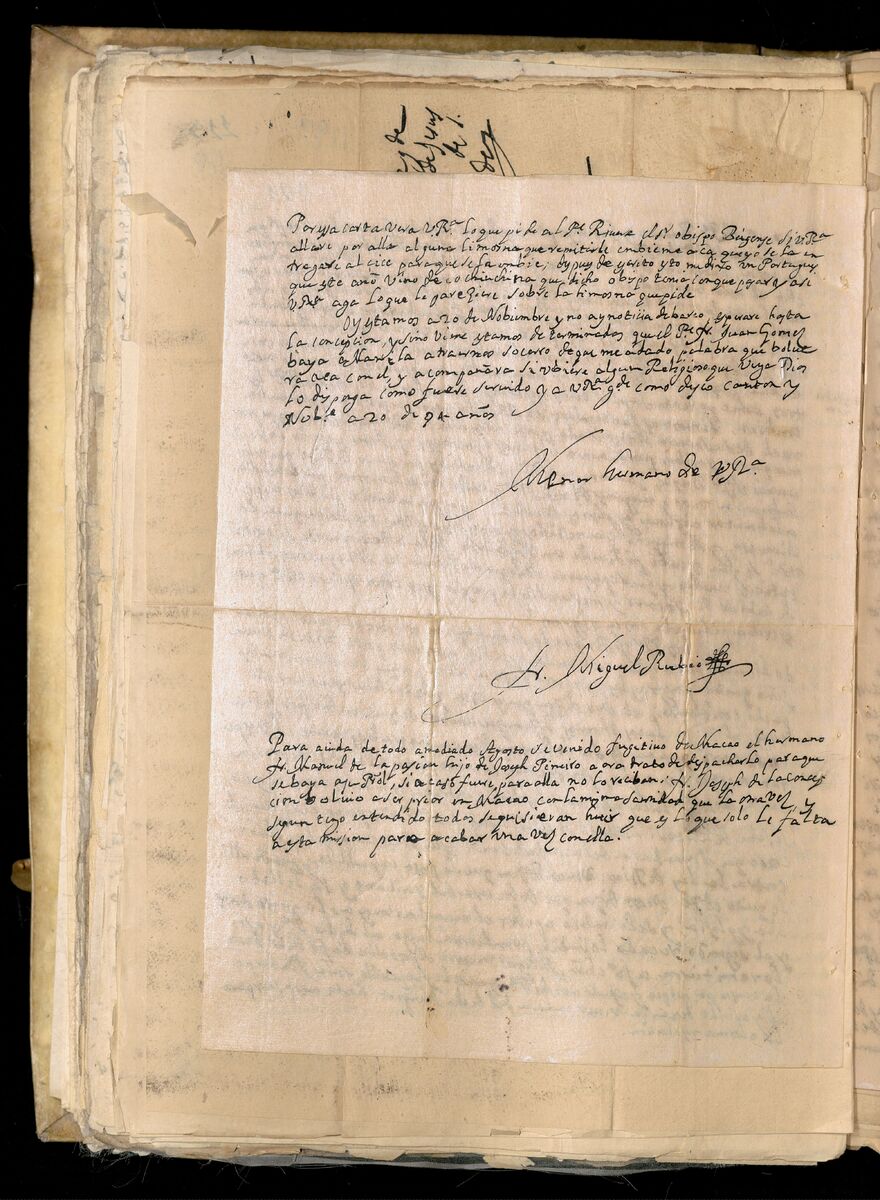 Por essa carta Vera V.Rª. lo que pide al Pe. el Sr. obispo Bugense si V.Rª
allare por alla alguna limosna que remitirle embieme aca que yo se la en
tregare al para que se la embie; despues de escrito esto me dizen un Portugues
que este año vino de cochinchina que dicho obispo tenia con que pasar y asi
V.Rª aga lo que le pareziere sobre la limosna que pide
Oy estamos a 20 de Nobiembre y no ay noticia de barco, esperare hasta
la concepcion, y sino viene estamos determinados que el Pe. fr. Juan Gomes
baya a Manila a traernos socorro de que me a dado palabra que bolve
ra aca con el, y acompañara si ubiere algun Religioso que Venga Dios
lo disponga como fuere servido y a V.Rª gde como deseo canton y
Nobre a 20 de 94 años
Menor hermano de V.Rª
fr. Miguel Rubio
Para aiuda de todo a mediado Agosto se venido fugitivo de Macao el hermano
fr. Manuel de la pasion hijo de Joseph Pineiro aora trato de despacharlo para que
se baya a su Prole, si acaso fuere para alla no lo reciban; fr. Joseph de la Concep
cion bolvio a ser prior en Macao con la misma que la otra vez, y
segun tengo entendido todos se quisieran huir que es lo que solo le falta
a esta mission para acabar una vez con ella.
de
de Jesus
de S.